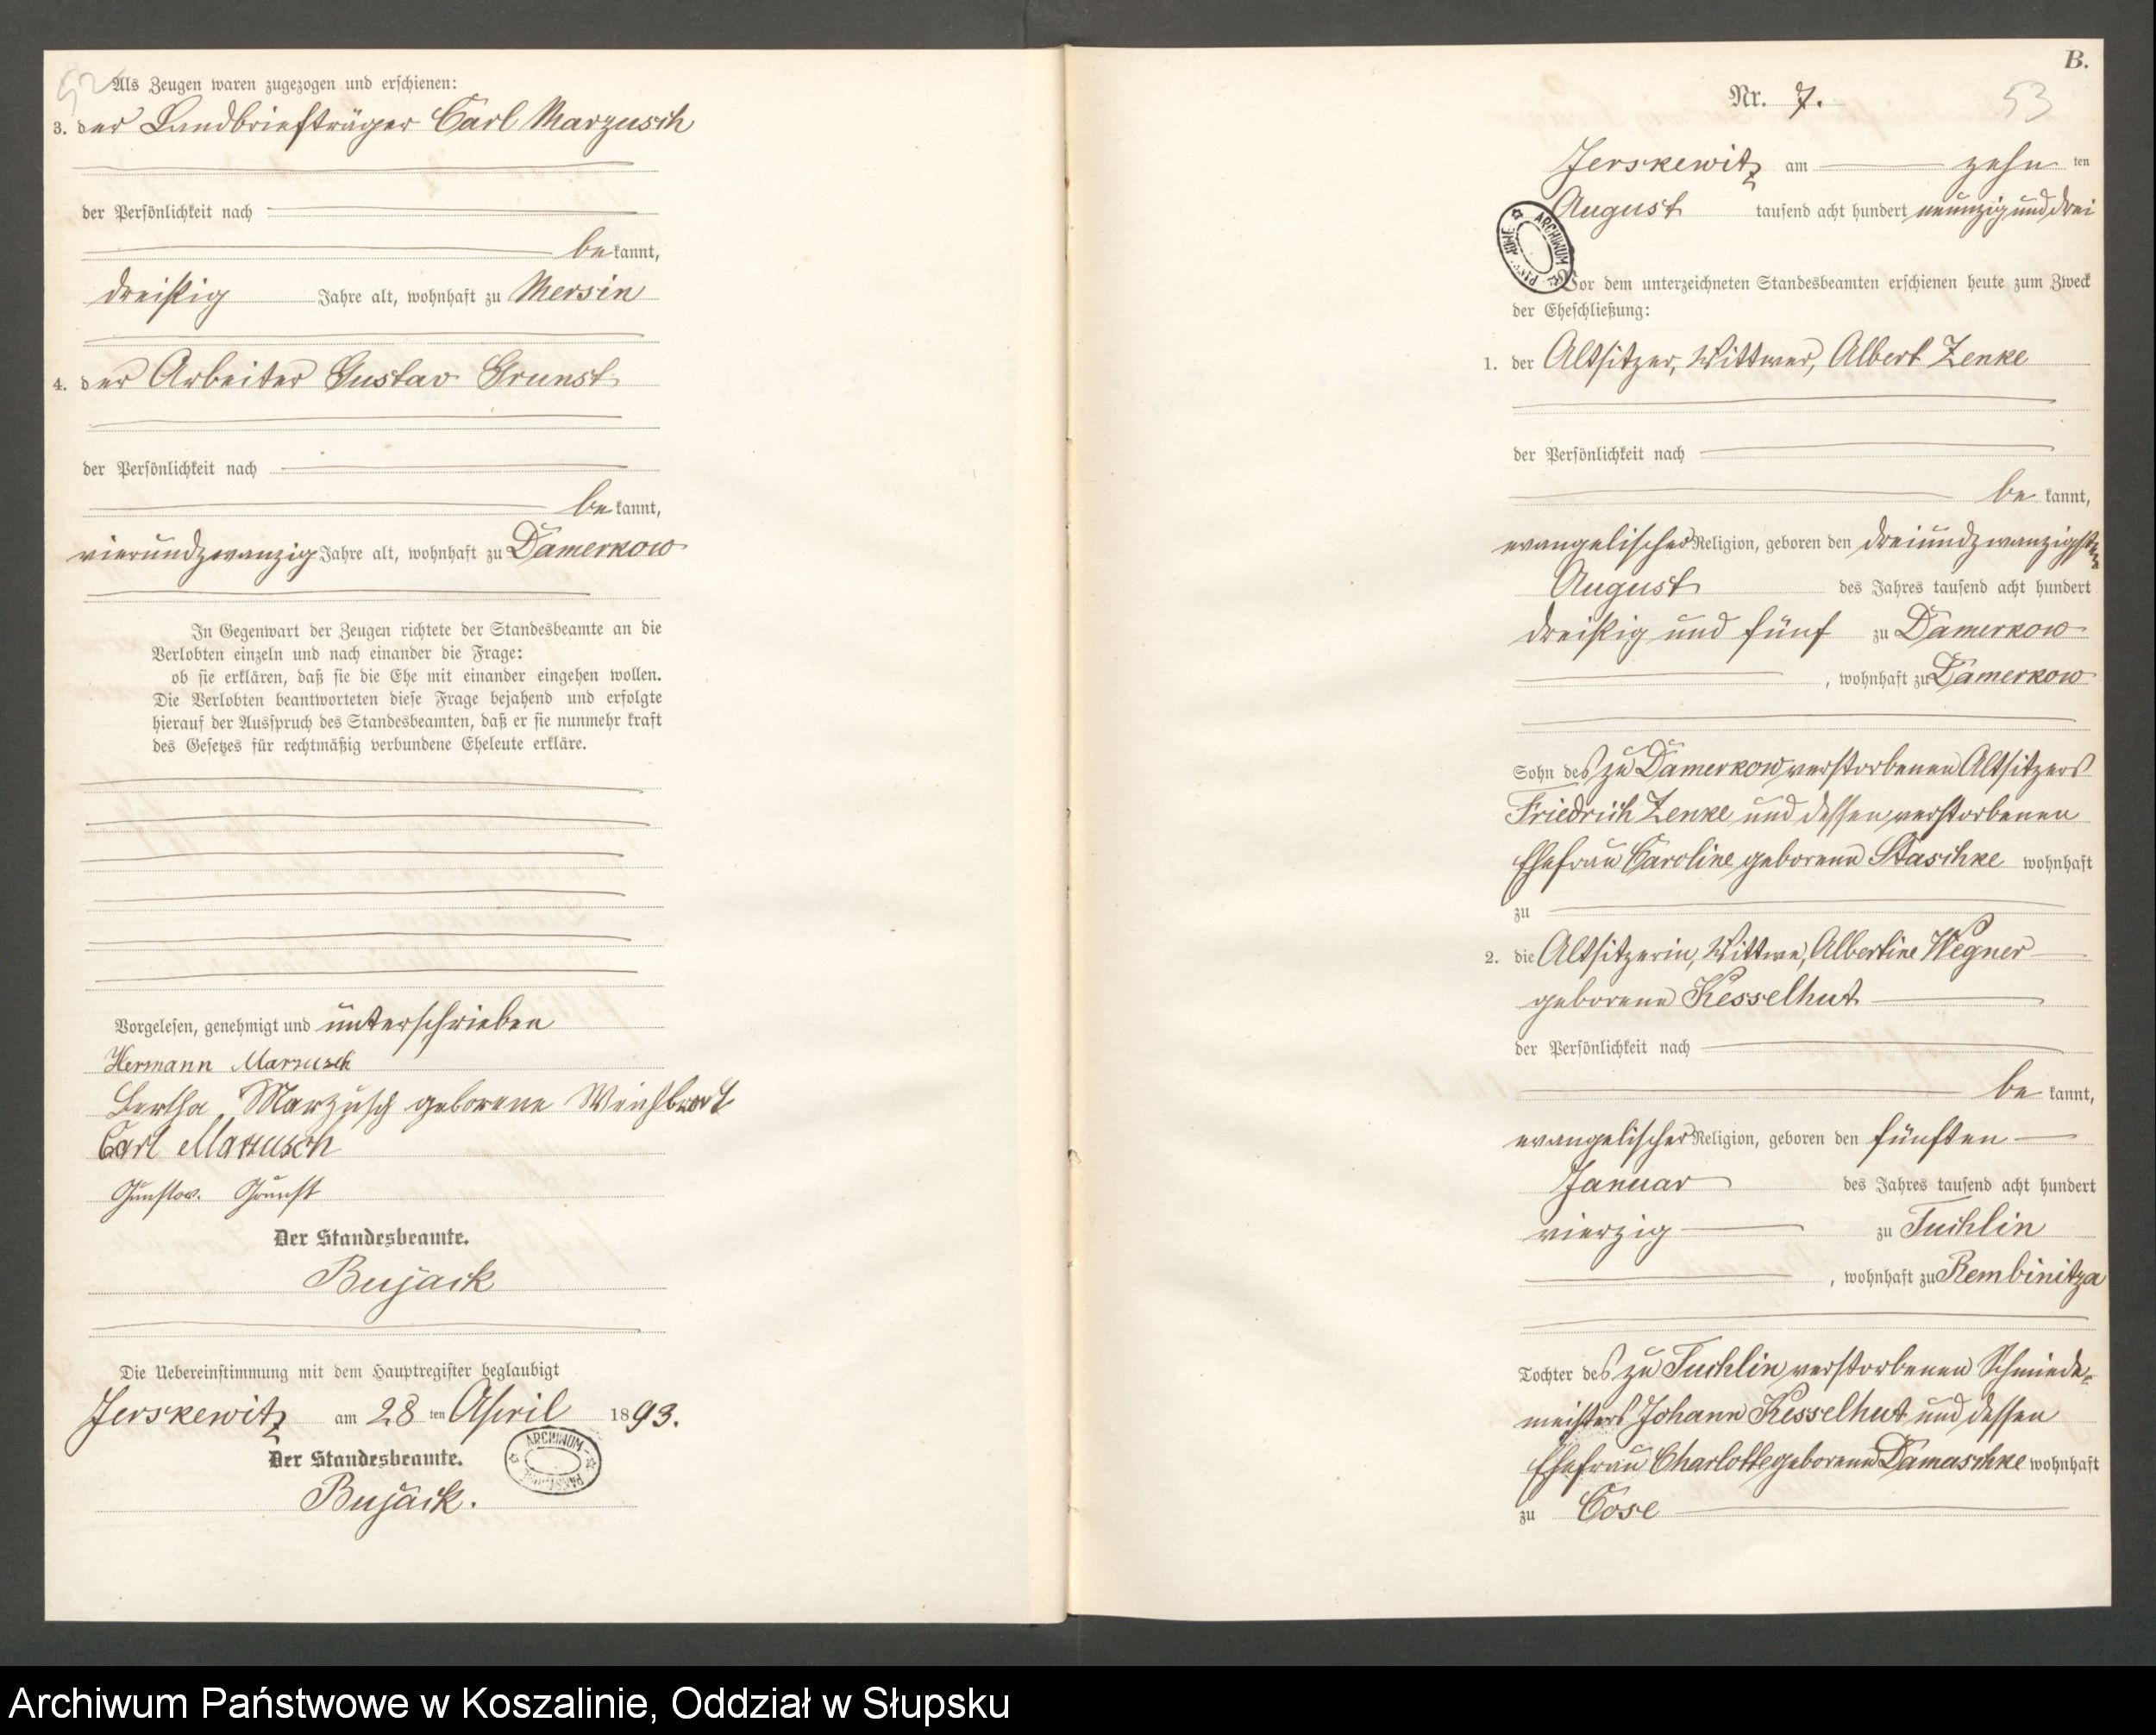 52
Als Zeugen waren zugezogen und erschienen:
3. der Landbriefträger Carl Marzusch
der Persönlichkeit nach
bekannt,
dreißig Jahre alt, wohnhaft zu Mersin
4. der Arbeiter Gustav Grunst
der Persönlichkeit nach
bekannt,
vierundzwanzig Jahre alt, wohnhaft zu Damerkow
In Gegenwart der Zeugen richtete der Standesbeamte an die
Verlobten einzeln und nach einander die Frage:
ob sie erklären, daß sie die Ehe mit einander eingehen wollen.
Die Verlobten beantworteten diese Frage bejahend und erfolgte
hierauf der Ausspruch des Standesbeamten, daß er sie nunmehr kraft
des Gesetzes für rechtmäßig verbundene Eheleute erkläre.
Vorgelesen, genehmigt und unterschrieben
Hermann Marzusch
Bertha Marzusch geborene
Carl Marzusch
Gunstav. Grunst
Der Standesbeamte.
Bujack
Die Uebereinstimmung mit dem Hauptregister beglaubigt
Jerskewitz am 28 ten April 1893.
Der Standesbeamte.
ARCHIWUM
Bujack.
B.
Nr. 7.
53
Jerskewitz am zehn ten
August tausend acht hundert neunzig und drei
ARCHIWUM
Vor dem unterzeichneten Standesbeamten erschienen heute zum Zweck
der Eheschließung:
1. der Altsitzer, Wittwer, Albert Zenke
der Persönlichkeit nach
bekannt,
evangelischer Religion, geboren den dreiundzwanzigsten
August des Jahres tausend acht hundert
dreißig und fünf zu Damerkow
, wohnhaft zu Damerkow
Sohn des zu Damerkow verstorbenen Altsitzers
Friedrich Zenke und dessen verstorbenen
Ehefrau Caroline geborene Staschke wohnhaft
zu
2. die Altsitzerin, Wittwe, Albertine Wegner
geborene Kesselhut
der Persönlichkeit nach
bekannt,
evangelischer Religion, geboren den fünften
Januar des Jahres tausend acht hundert
vierzig zu Tuchlin
, wohnhaft zu Rembinitza
Tochter des zu Tuchlin verstorbenen Schmiede-
meisters Johann Kesselhut und dessen
Ehefrau Charlotte geborene Damaschke wohnhaft
zu Cose
Archiwum Państwowe w Koszalinie, Oddział w Słupsku